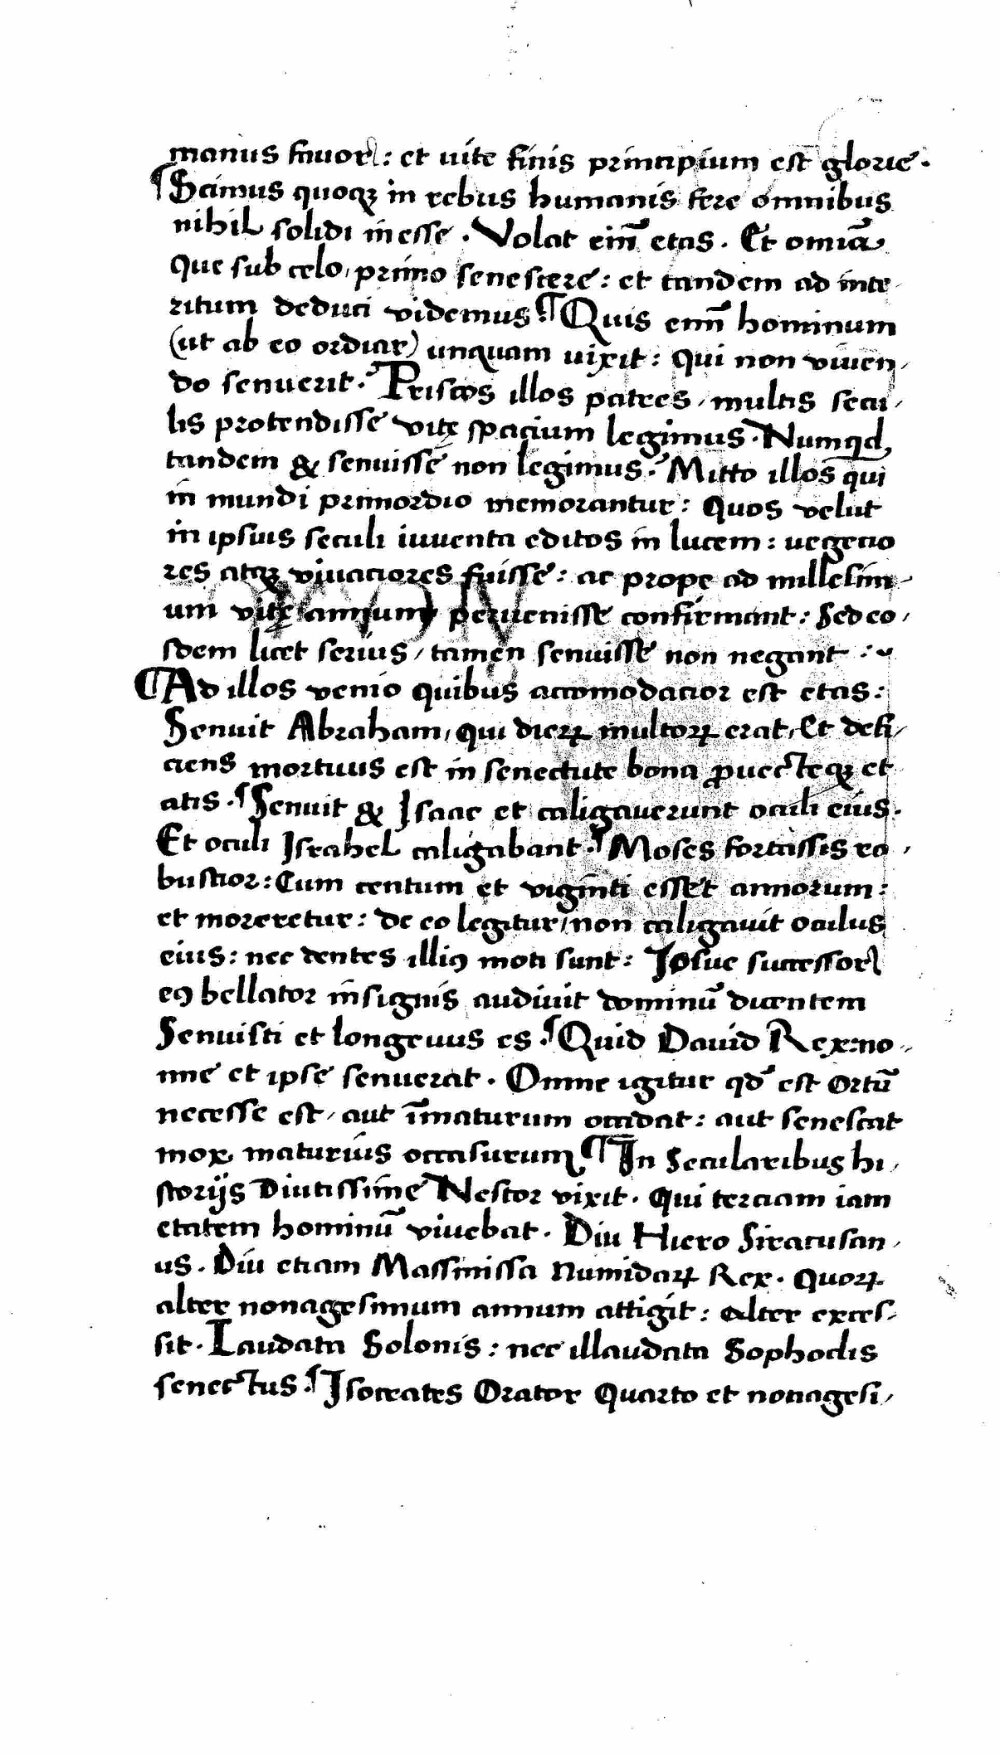 manus fauor: et uite finis principium est glorie.
¶Scimus quoqꝫ in rebus humanis fere omnibus
nihil solidi inesse. Volat eiñ etas. Et omĩa
que sub celo, primo senescere: et tandem ad inte-
ritum deduci videmus. ¶Quis eniñ hominum
(ut ab eo ordiar) unquam uixit: qui non viuen-
do senuerit. Priscos illos patres, multis secu-
lis protendisse vitę spacium legimus. Numqd
tandem & senuisse non legimus. Mitto illos qui
in mundi primordio memorantur: Quos velut
in ipsius seculi iuuenta editos in lucem: uegecio
res atqꝫ viuaciores fuisse: ac prope ad millesim-
um vitę annum peruenisse confirmant: Sed eo-
sdem licet serius, tamen senuisse non negant.
¶Ad illos venio quibus accomodacior est etas:
Senuit Abraham, qui dieꝝ multoꝝ erat, Et defi-
ciens mortuus est in senectute bona ꝓuecteqꝫ et
atis. ¶Senuit & Isaac et caligauerunt oculi eius.
Et oculi Israhel caligabant. ¶Moses fortassis ro-
bustior: Cum centum et viginti esset annorum:
et moreretur: de eo legitur, non caligauit oculus
eius: nec dentes illiꝰ moti sunt: Iosue successor
eꝰ bellator insignis audiuit dominũ dicentem
Senuisti et longeuus es. ¶Quid Dauid Rex: no-
nne et ipse senuerat. Omne igitur qđ est ortũ
necesse est, aut im̄aturum occidat: aut senescat
mox maturius occasurum. ¶In Secularibus hi-
storijs Diutissime Nestor vixit. qui terciam iam
etatem hominũ viuebat. Diu Hiero Siracusan-
us. Diu etiam Massinissa Numidaꝝ Rex. Quoꝝ
alter nonagesimum annum attigit: alter exces-
sit. Laudata Solonis: nec illaudata Sophoclis
senectus. ¶Isocrates Orator Quarto et nonagesi-